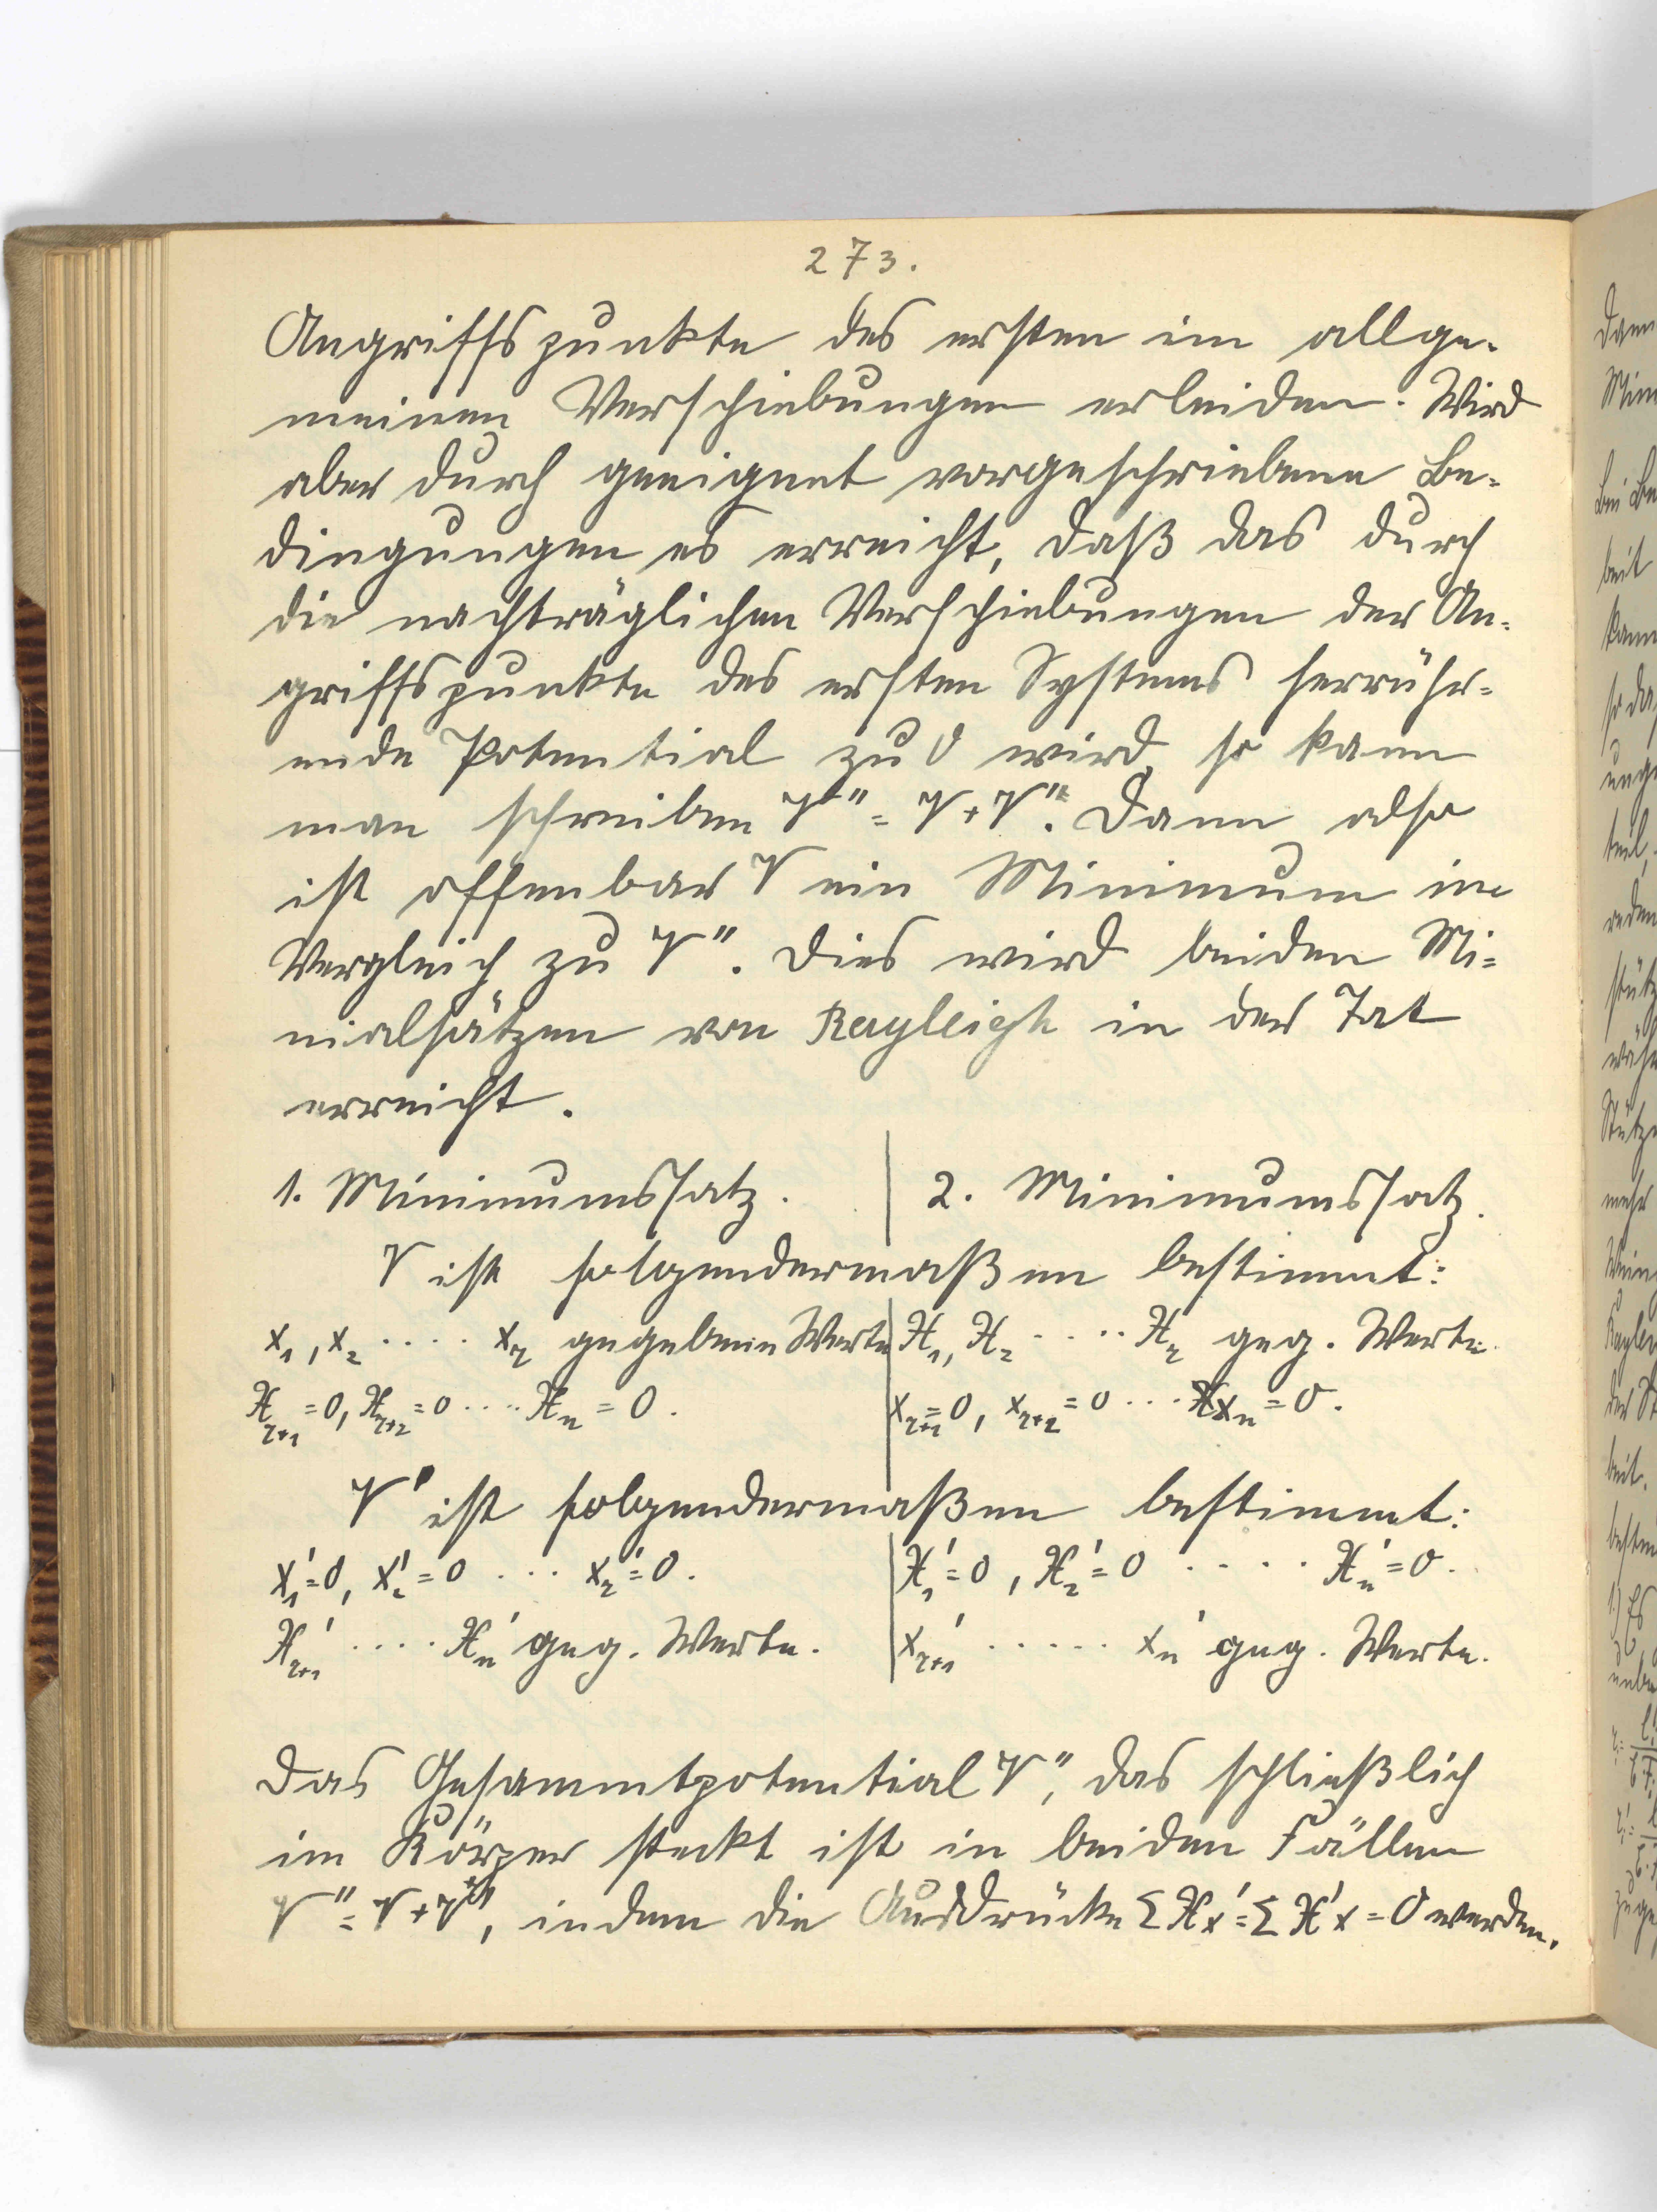 273.
Angriffspunkte des ersten im allge-
meinen Verschiebungen erleiden. Wird
aber durch geeignet vorgeschriebene Be-
dingungen es erreicht, daß das durch
die nachträglichen Verschiebungen der An-
griffspunkte des ersten Systems herrühr-
ende Potential zu 0 wird, so kann
man schreiben V'' = V + V'. Dann also
ist offenbar V ein Minimum im
Vergleich zu V''. Dies wird beiden Mi-
nialsätzen von Rayleigh in der Tat
erreicht.
1. Minimumssatz. | 2. Minimumssatz.
V ist folgendermaßen bestimmt:
x₁, x₂ .... x_r gegebene Werte | H₁, H₂ .... H_r geg. Werte.
H_{r+1} = 0, H_{r+2} = 0 .... H_n = 0. | x_{r+1} = 0, x_{r+2} = 0 ... x_n = 0.
V' ist folgendermaßen bestimmt:
x₁' = 0, x₂' = 0 ... x_r' = 0. | H₁' = 0, H₂' = 0 .... H_n' = 0.
H_{r+1}' .... H_n' geg. Werte. | x_{r+1}' ..... x_n' geg. Werte.
Das Gesammtpotential V'', das schließlich
im Körper steckt ist in beiden Fällen
V'' = V + V', indem die Ausdrücke Σ H x' = Σ H' x = 0 werden.